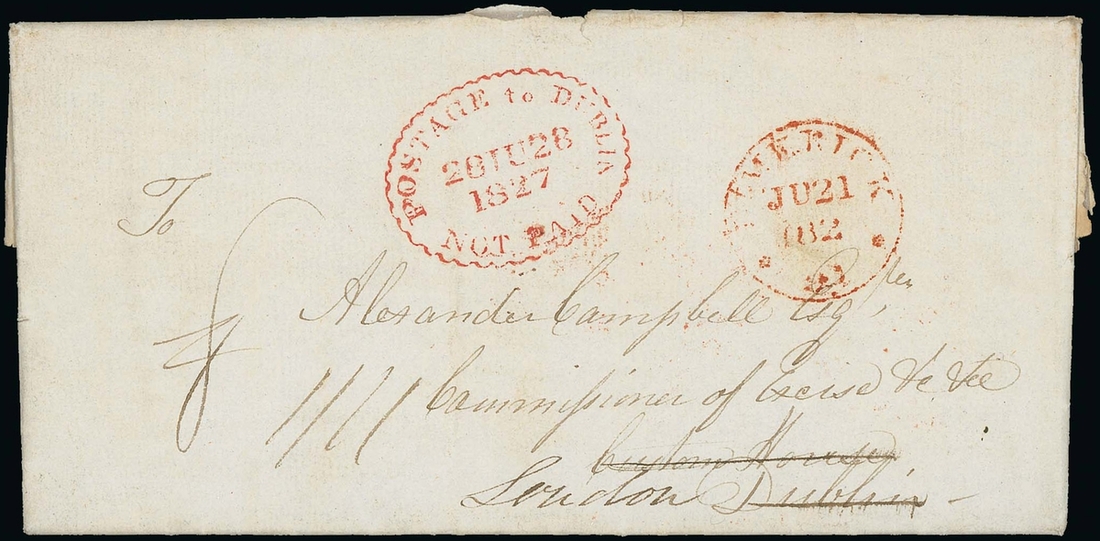 POSTAGE to DUBLIN
28JU28
1827
NOT PAID
LIMERICK
JU21
182
To
Alexander Campbell Esqr
Commissioner of Excise &c &c
Custom House
London Dublin